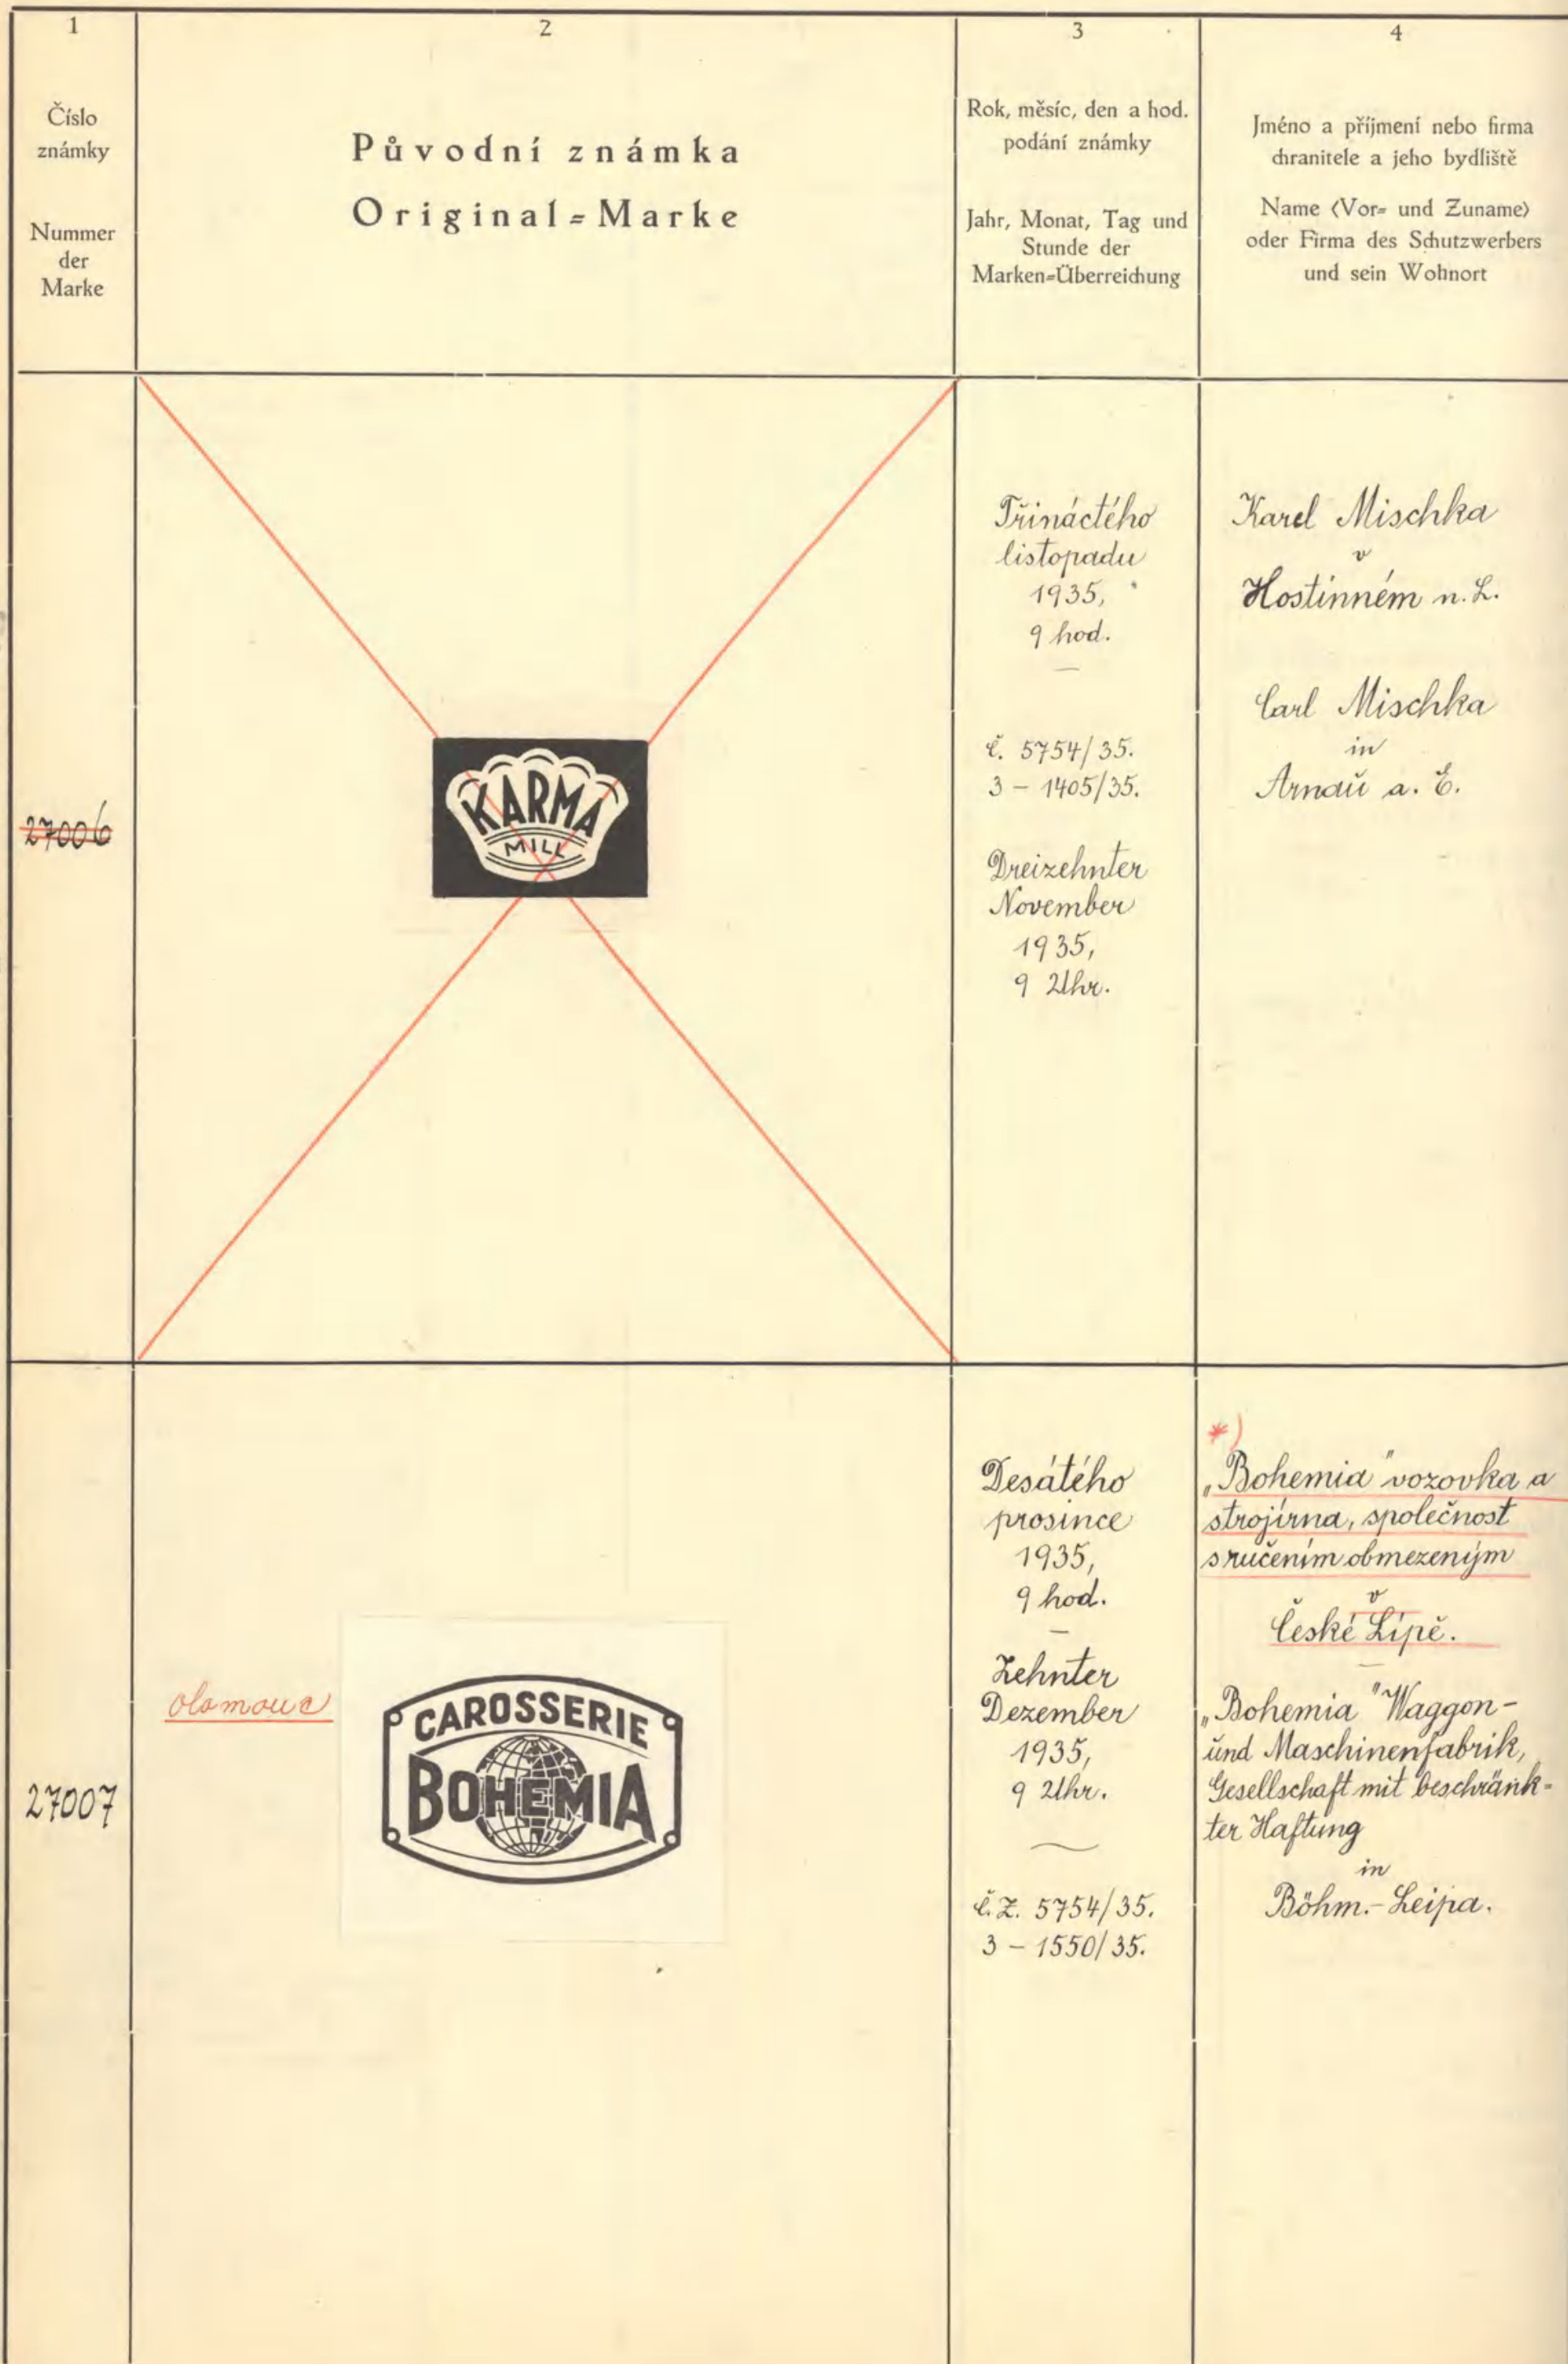 1
Číslo
známky
Nummer
der
Marke
2
Původní známka
Original=Marke
3
Rok, měsíc, den a hod.
podání známky
Jahr, Monat, Tag und
Stunde der
Marken=Überreichung
4
Jméno a příjmení nebo firma
chranitele a jeho bydliště
Name (Vor= und Zuname)
oder Firma des Schutzwerbers
und sein Wohnort
27006
KARMA
MILL
Třináctého
listopadu
1935,
9 hod.
č. 5754/35.
3 – 1405/35.
Dreizehnter
November
1935,
9 Uhr.
Karel Mischka
v
Hostinném n. L.
Carl Mischka
in
Arnau a. E.
27007
Olomouc
CAROSSERIE
BOHEMIA
Desátého
prosince
1935,
9 hod.
Zehnter
Dezember
1935,
9 Uhr.
č.Z. 5754/35.
3 – 1550/35.
*)
„Bohemia" vozovka a
strojírna, společnost
s ručením obmezeným
v
České Lípě.
„Bohemia" Waggon-
und Maschinenfabrik,
Gesellschaft mit beschränk-
ter Haftung
in
Böhm.-Leipa.